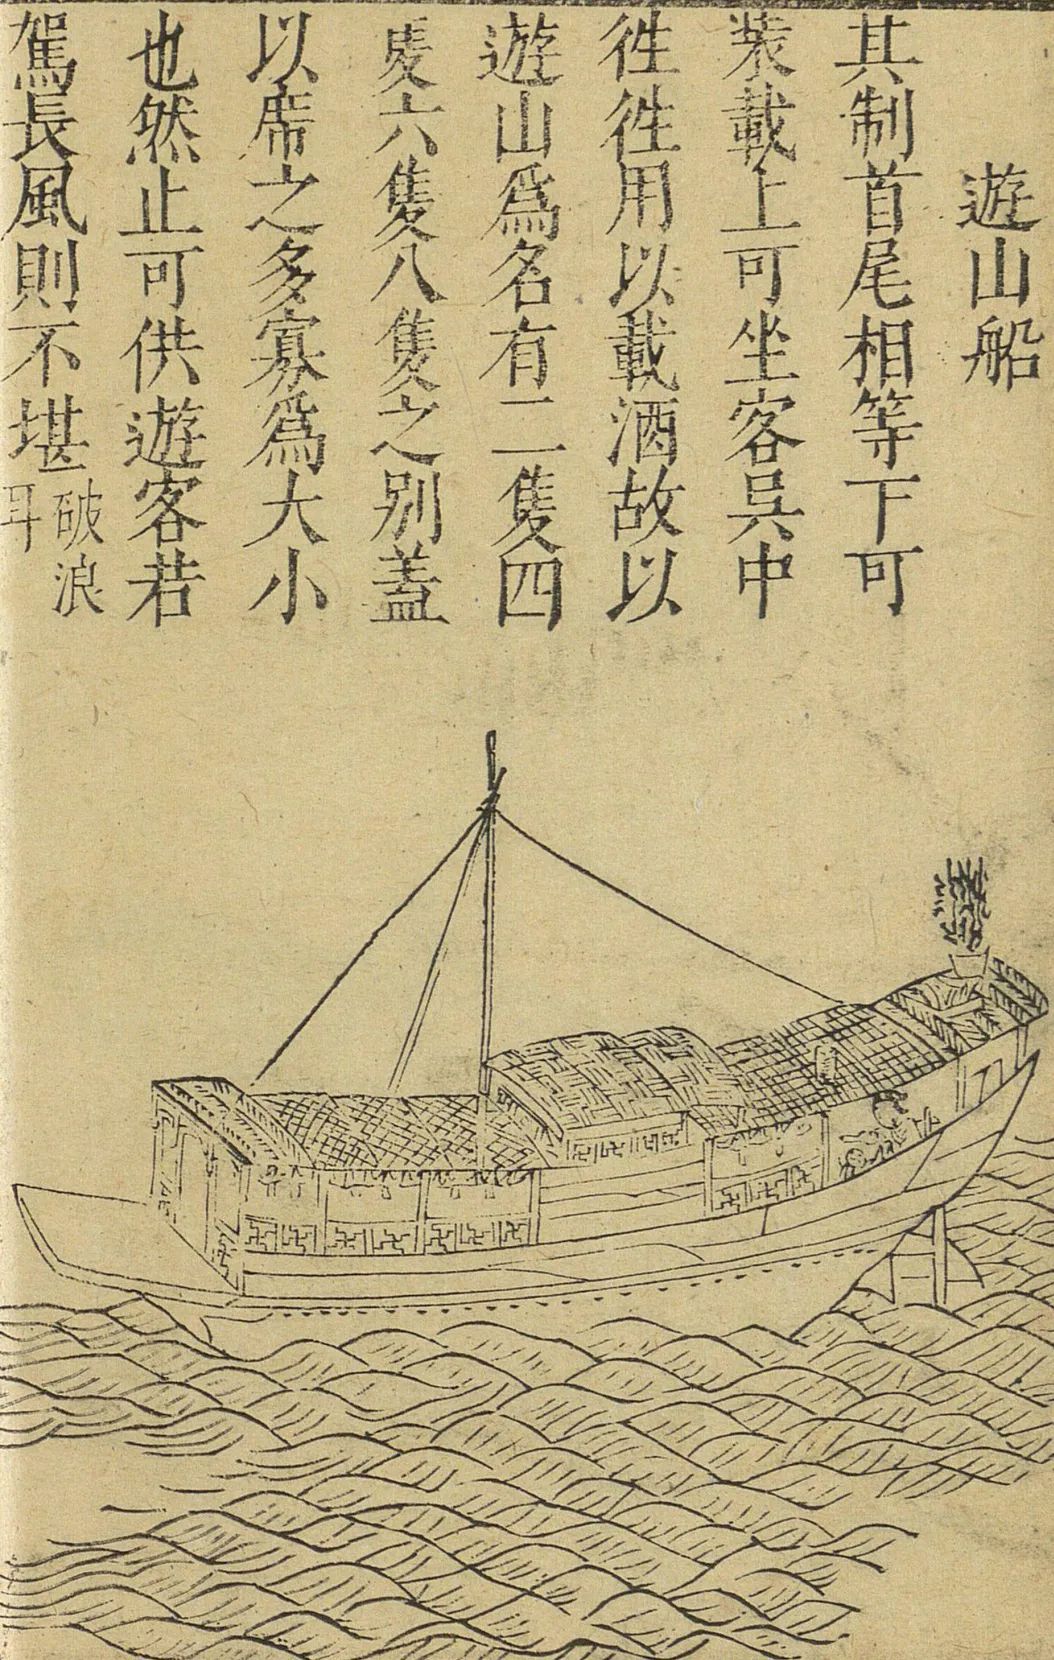 遊山船
其制首尾相等下可
装載上可坐客吳中
徃徃用以載酒故以
遊山爲名有二隻四
隻六隻八隻之别蓋
以席之多寡爲大小
也然止可供遊客若
駕長風則不堪破浪
耳